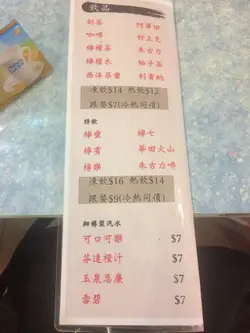 飲品
奶茶 阿華田
咖啡 好立克
檸檬茶 朱古力
檸檬水 柚子茶
西洋菜蜜 利賓納
凍飲$14 熱飲$12
跟餐$7(冷熱同價)
特飲
檸蜜 檸七
檸賓 華田火山
檸樂 朱古力啡
凍飲$16 熱飲$14
跟餐$9(冷熱同價)
細樽裝汽水
可口可樂 $7
芬達橙汁 $7
玉泉忌廉 $7
雪碧 $7